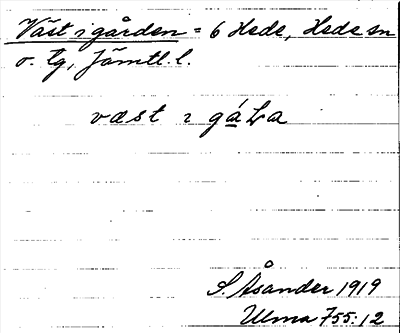 Väst i gården = 6 Hede, Hede sn
o. tg, Jämtl. l.
väst i gáLa
S. Åsander 1919
Ulma 755:12